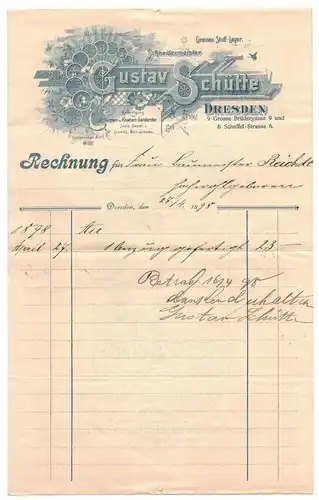 Grosses Stoff-Lager.
Schneidermeister
Gustav Schütte
DRESDEN
9 Grosse Brüdergasse 9 und
6 Scheffel-Strasse 6.
Rechnung für Frau Baumeister Reichelt
Hochwohlgeboren
Dresden, den 1898
1898 An
April 27. 1 Anzug gefertigt 23 —
Betrag 16/4 98
dankend erhalten
Gustav Schütte